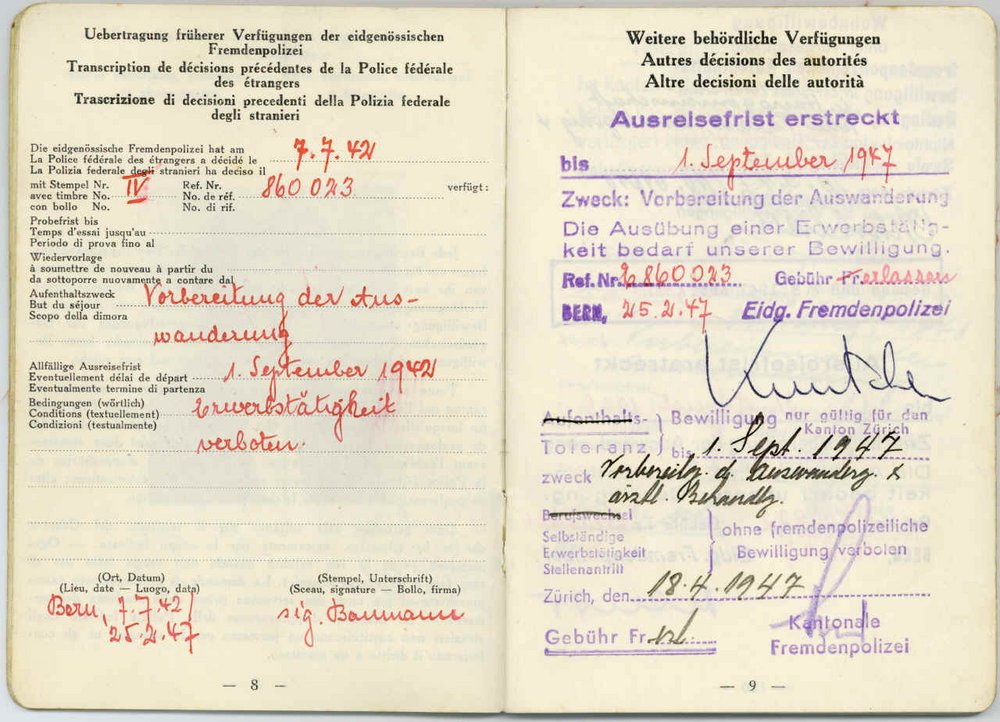 Uebertragung früherer Verfügungen der eidgenössischen
Fremdenpolizei
Transcription de décisions précédentes de la Police fédérale
des étrangers
Trascrizione di decisioni precedenti della Polizia federale
degli stranieri
Die eidgenössische Fremdenpolizei hat am
La Police fédérale des étrangers a décidé le 7.7.42
La Polizia federale degli stranieri ha deciso il
mit Stempel Nr. Ref. Nr. verfügt:
avec timbre No. IV No. de réf. 860 023
con bollo No. No. di rif.
Probefrist bis
Temps d'essai jusqu'au
Periodo di prova fino al
Wiedervorlage
à soumettre de nouveau à partir du
da sottoporre nuovamente a contare dal
Aufenthaltszweck Vorbereitung der Aus-
But du séjour
Scopo della dimora
wanderung
Allfällige Ausreisefrist
Eventuellement délai de départ 1. September 1942
Eventualmente termine di partenza
Bedingungen (wörtlich) Erwerbstätigkeit
Conditions (textuellement)
Condizioni (testualmente)
verboten.
(Ort, Datum) (Stempel, Unterschrift)
(Lieu, date — Luogo, data) (Sceau, signature — Bollo, firma)
Bern, 7.7.42 sig. Baumann
25.2.47
— 8 —
Weitere behördliche Verfügungen
Autres décisions des autorités
Altre decisioni delle autorità
Ausreisefrist erstreckt
bis 1. September 1947
Zweck: Vorbereitung der Auswanderung
Die Ausübung einer Erwerbstätig-
keit bedarf unserer Bewilligung.
Ref. Nr. 860023 Gebühr Fr. erlassen
BERN, 25.2.47 Eidg. Fremdenpolizei
Aufenthalts- Bewilligung nur gültig für den
Kanton Zürich
Toleranz bis 1. Sept. 1947
zweck Vorbereitg. d. Auswanderg. &
ärztl. Behandlg.
Berufswechsel
Selbständige ohne fremdenpolizeiliche
Erwerbstätigkeit Bewilligung verboten
Stellenantritt
Zürich, den 18.4.1947
Kantonale
Gebühr Fr.
Fremdenpolizei
— 9 —